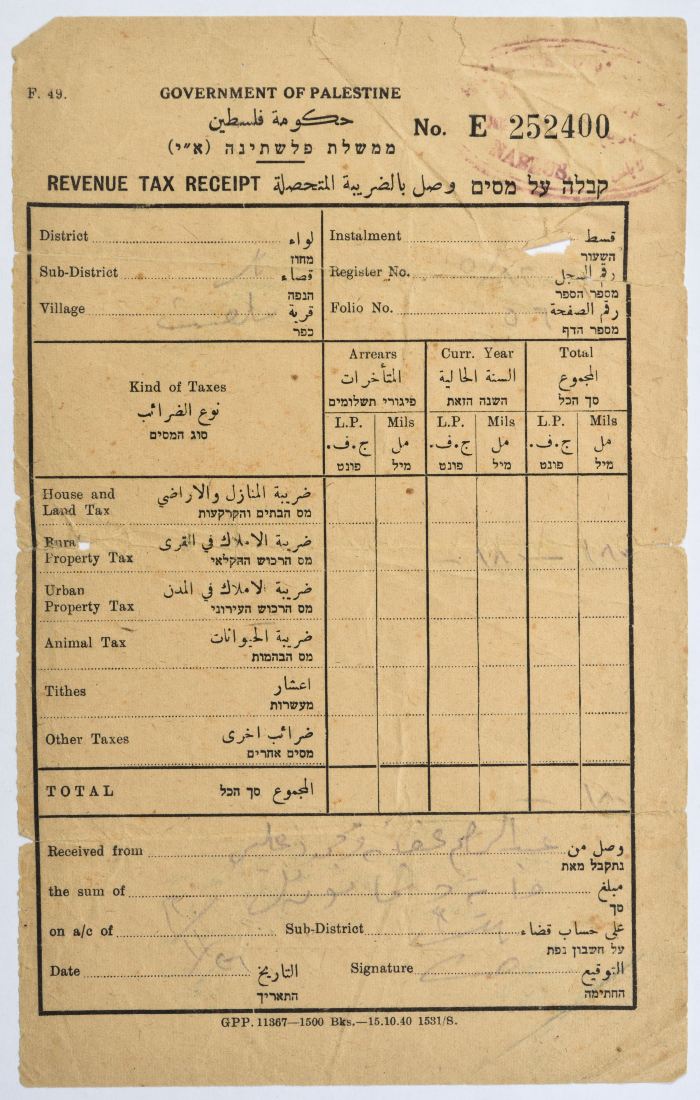 F. 49.
GOVERNMENT OF PALESTINE
حكومة فلسطين
ממשלת פלשתינה (א״י)
No. E 252400
NABLUS
REVENUE TAX RECEIPT وصل بالضريبة المتحصلة קבלה על מסים
District لواء
מחוז
Instalment قسط
השעור
Sub-District قضاء
הנפה
Register No. رقم السجل
מספר הספר
Village قرية
כפר
Folio No. رقم الصفحة
מספר הדף
Kind of Taxes
نوع الضرائب
סוג המסים
Arrears
المتأخرات
פיגורי תשלומים
Curr. Year
السنة الحالية
השנה הזאת
Total
المجموع
סך הכל
L.P. Mils L.P. Mils L.P. Mils
ج.ف. مل ج.ف. مل ج.ف. مل
פונט מיל פונט מיל פונט מיל
House and Land Tax ضريبة المنازل والاراضي
מס הבתים והקרקעות
Rural Property Tax ضريبة الاملاك في القرى
מס הרכוש החקלאי
Urban Property Tax ضريبة الاملاك في المدن
מס הרכוש העירוני
Animal Tax ضريبة الحيوانات
מס הבהמות
Tithes اعشار
מעשרות
Other Taxes ضرائب اخرى
מסים אחרים
TOTAL المجموع סך הכל
Received from وصل من
נתקבל מאת
the sum of مبلغ
סך
on a/c of Sub-District على حساب قضاء
על חשבון נפת
Date التاريخ
התאריך
Signature التوقيع
החתימה
GPP. 11367—1500 Bks.—15.10.40 1531/S.